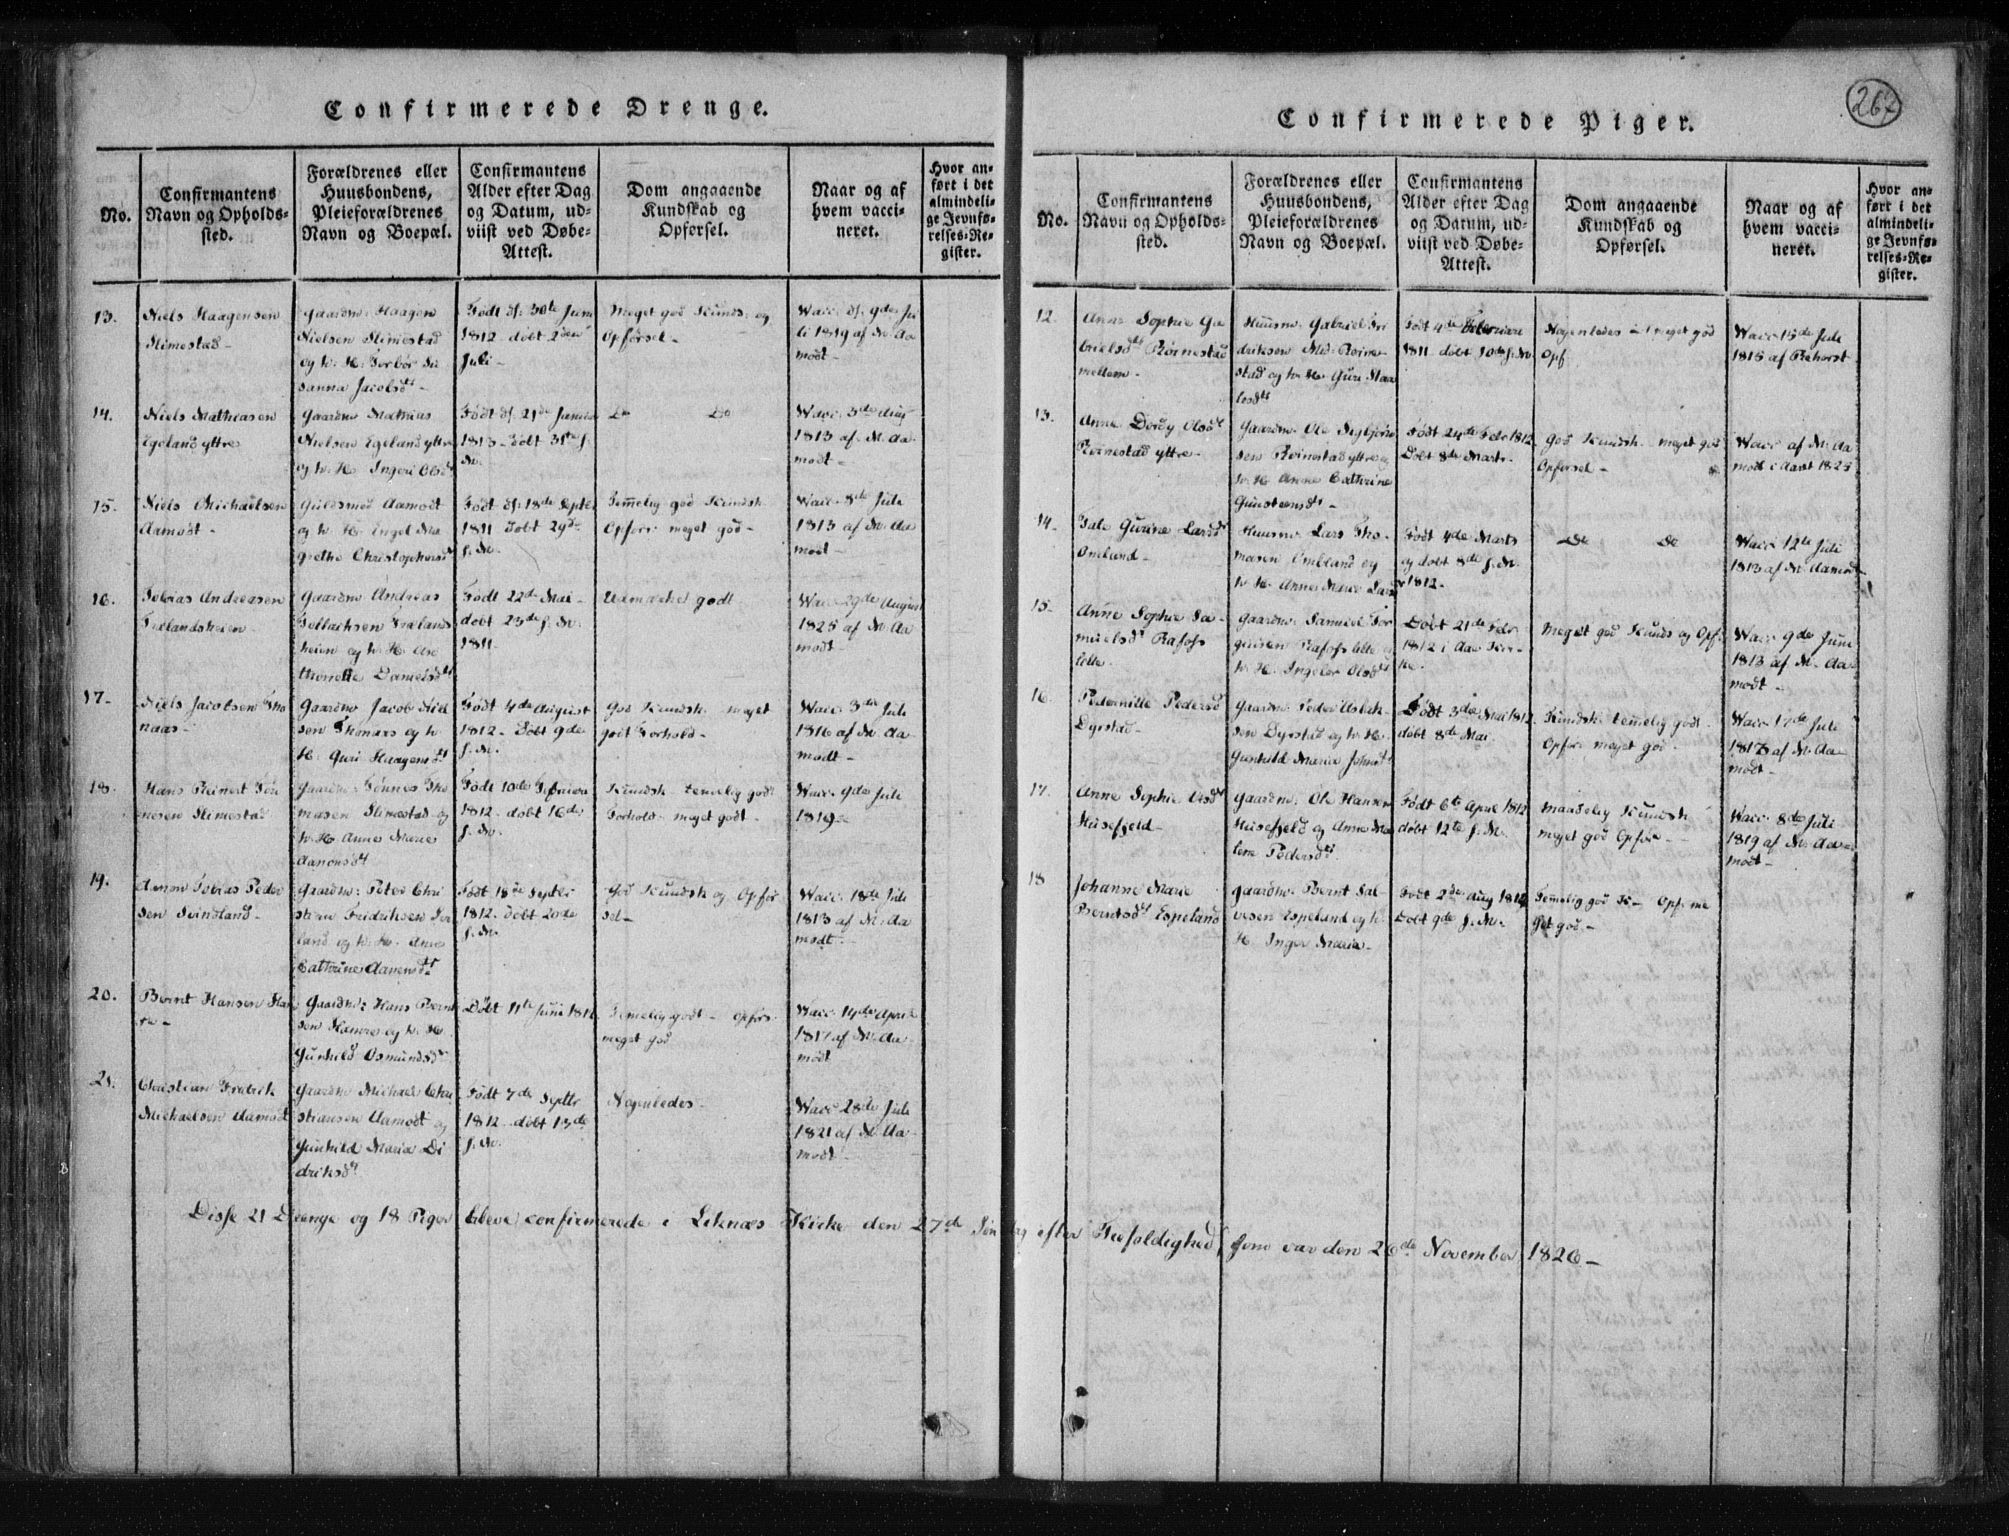 Confirmerede Drenge.
No.
Confirmantens
Navn og Opholds-
sted.
Forældrenes eller
Huusbondens,
Pleieforældrenes
Navn og Boepæl.
Confirmantens
Alder efter Dag
og Datum, ud-
viist ved Døbe-
Attest.
Dom angaaende
Kundskab og
Opførsel.
Naar og af
hvem vacci-
neret.
Hvor an-
ført i det
almindeli-
ge Jevnfø-
relses-Re-
gister.
13.
Niels Haagensen
Slimestad-
Gaardm: Haagen
Nielsen Slimestad
og h. H. Torbør Su
sanna Jacobsdt-
Født d: 30te Juni
1812 døbt 2den
Juli-
Meget god Kunds: og
Opførsel-
Vacc. d: 9de Ju
li 1819 af M. Aa
modt-
14.
Niels Mathiasen
Egeland yttre
Gaardm Mathias
Nielsen Egeland yttre
og h. H. Ingeri Olsdt
Født d: 21de Januar
1813- Døbt 31te s.
M.
Do Do
Vacc. 3de Aug
1813 af M. Aa-
modt-
15.
Niels Michaelsen
Aamodt-
Guldsmed Aamodt
og h. H. Engel Ma
grethe Christophersdt
Født d: 18de Septbr
1811 Døbt 29de
s. M.
Temelig god Kundsk.
Opfør: meget god-
Vacc. 8de Juli
1813 af M. Aa
modt-
16.
Tobias Andreasen
Frelandsheien-
Gaardm Andreas
Tollachsen Frelands
heien og h. H. Ane
Thonette Danielsdt
Født 22de Mai-
døbt 23de s. M.
1811.
Udmærket godt
Vacc. 29de August
1825 af M. Aa
modt-
17-
Niels Jacobsen Tho
naas-
Gaardm Jacob Niel
sen Thonaas og h
H. Guri Haagensdt
Født 4de August
1812- Døbt 9de
s. M.
God Kundsk. meget
godt Forhold-
Vacc. 3de Juli
1816 af M. Aa-
modt-
18.
Hans Reinert Tøn
nesen Slimestad
Gaardm. Tønnes Tho
masen Slimestad og
h. H. Anne Marie
Aanonsdt
Født 10de Februar
1812- døbt 16de
s. M.
Kundsk temelig god
Forhold- meget godt-
Vacc. 9de Juli
1819-
19.
Aanon Tobias Peder
sen Svindland-
Gaardm: Peter Chri
stian Fridriksen
land og h. H. Ane
Cathrine Aanensdt
Født 18de Septbr
1812- døbt 20de
s. M.
God Kundsk og Opfør
sel-
Vacc. 18de Juli
1813 af M. Aa
modt-
20.
Bernt Hansen
Gaardm: Hans Bernt
sen og h. H.
Gunhild Osmundsdt
Døbt 11te Juni 1811
Temelig godt- Opførs.
meget god
Vacc. 14de April
1817 af M. Aa-
modt
21.
Christian Fredrik
Michaelsen Aamodt
Gaardm Michael Chri
stiansen Aamodt og
Gunhild Maria Di
driksdt
Født 7de Septbr
1812- døbt 13de
s. M.
Nogenledes-
Vacc. 28de Juli
1821 af M. Aa-
modt-
Confirmerede Piger.
267
No.
Confirmantens
Navn og Opholds-
sted.
Forældrenes eller
Huusbondens,
Pleieforældrenes
Navn og Boepæl.
Confirmantens
Alder efter Dag
og Datum, ud-
viist ved Døbe-
Attest.
Dom angaaende
Kundskab og
Opførsel.
Naar og af
hvem vacci-
neret.
Hvor an-
ført i det
almindeli-
ge Jevnfø-
relses-Re-
gister.
12.
Anne Sophie Ga
brielsdt Rørnestad
mellem-
Huusm: Gabriel Fri
driksen Mid: Rørne-
stad og h. H. Guri
Født 4de Februar
1811 døbt 10de s. M.
Nogenledes- meget god
Opf.
Vacc. 15de Juli
1815 af Rehorst
13.
Anne Dordy Olsdt
Rørnestad yttre-
Gaardm. Ole Sigbjørn
sen Rørnestad yttre og
h. H. Anne Cathrine
Gunsteensdt-
Født 24de Febr 1812
Døbt 8de Marts-
God Kundsk. meget god
Opførsel-
Vacc af M. Aa
modt i Aaret 1825
14.
Tale Gurine Larsdt
Omland-
Huusm. Lars Tho-
masen Omland og
h. H. Anne Marie
Født 4de Marts
og døbt 8de s. M.
1812-
Do Do
Vacc 12te Juli
1813 af M. Aamodt-
15-
Anne Sophie Sa-
muelsdt Rafoss
lille
Gaardm. Samuel Tor
giusen Rafoss lille og
h. H. Ingebor Olsdt
Døbt 21de Febr
1812 i Aae Kir-
ke.
Meget god Kunds og Opf.
Vacc. 9de Juni
1813 af M. Aa-
modt-
16
Pedernille Pedersd
Dyrstad-
Gaardm. Peder
sen Dyrstad og h. H.
Gunhild Maria Johnsdt
Født 3die Mai 1812
døbt 8de Mai
Kundsk. temelig godt.
Opfør: meget god-
Vacc. 17de Juli
1813 af M. Aa
modt-
17.
Anne Sophie Olsdt
Husefjeld-
Gaardm. Ole Hansen
Husefjeld og Anne Ma
lene Pedersdt
Født 6te April 1812
døbt 12te s. M.
maadelig Kundsk
meget god Opfør-
Vacc. 8de Juli
1819 af M. Aa-
modt-
18
Johanne Marie
Berntsdt Espeland
Gaardm. Bernt Sal-
vesen Espeland og h.
H. Inger Maria-
Født 2de Aug 1812
Døbt 9de s. M.
Temelig god K- Opf. me
get god.-
Disse 21 Drenge og 18 Piger bleve confirmerede i Liknæs Kirke den 27de Søndag efter Trefoldighed, som var den 26de November 1826-